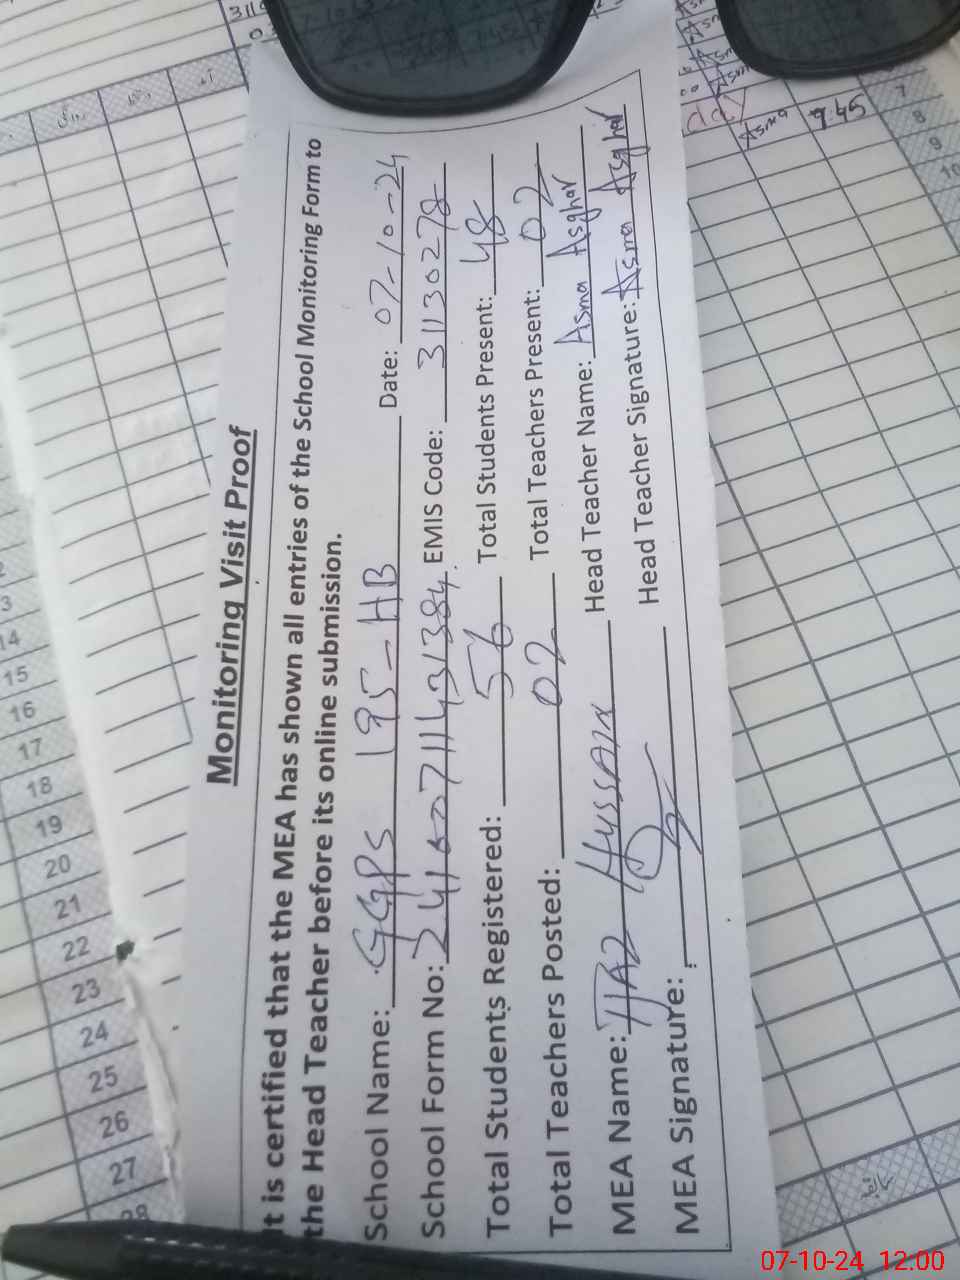 Monitoring Visit Proof
It is certified that the MEA has shown all entries of the School Monitoring Form to
the Head Teacher before its online submission.
School Name: GGPS 195-HB Date: 07-10-24
School Form No: EMIS Code: 31130278
Total Students Registered: 56 Total Students Present: 48
Total Teachers Posted: 02 Total Teachers Present: 02
MEA Name: IJAZ Hussain Head Teacher Name: Asma Asghar
MEA Signature: Head Teacher Signature: Asma Asghar
Asma 9:45
7
8
9
10
14
15
16
17
18
19
20
21
22
23
24
25
26
27
28
07-10-24 12:00